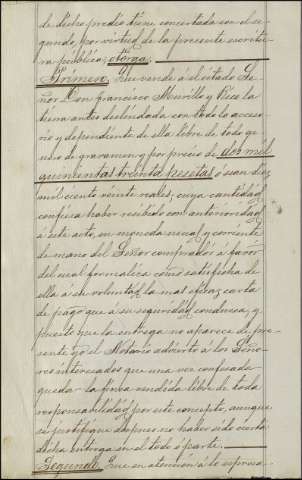 de dicho predio tiene concertada con el se-
gundo, por virtud de la presente escritu-
ra pública, otorga.
Primero. Que vende á el citado Se-
ñor Don Francisco Murillo y Rico la
tierra antes deslindada con todo lo acceso-
rio y dependiente de ella libre de todo gé-
nero de gravamen y por precio de dos mil
quinientas treinta pesetas ó sean diez
mil ciento veinte reales, cuya cantidad
confiesa haber recibido con anterioridad
á este acto, en moneda usual y corriente
de mano del Señor comprador á favor
del cual formaliza como satisfecha de
ella á su voluntad la mas eficaz carta
de pago que á su seguridad conduzca, y
puesto que la entrega no aparece de pre-
sente yo el Notario advierto á los Seño-
res interesados que una vez confesada
queda la finca vendida libre de toda
responsabilidad por este concepto, aunque
se justifique despues no haber sido cierta
dicha entrega en el todo ó parte.
Segundo. Que en atención á lo espresa-